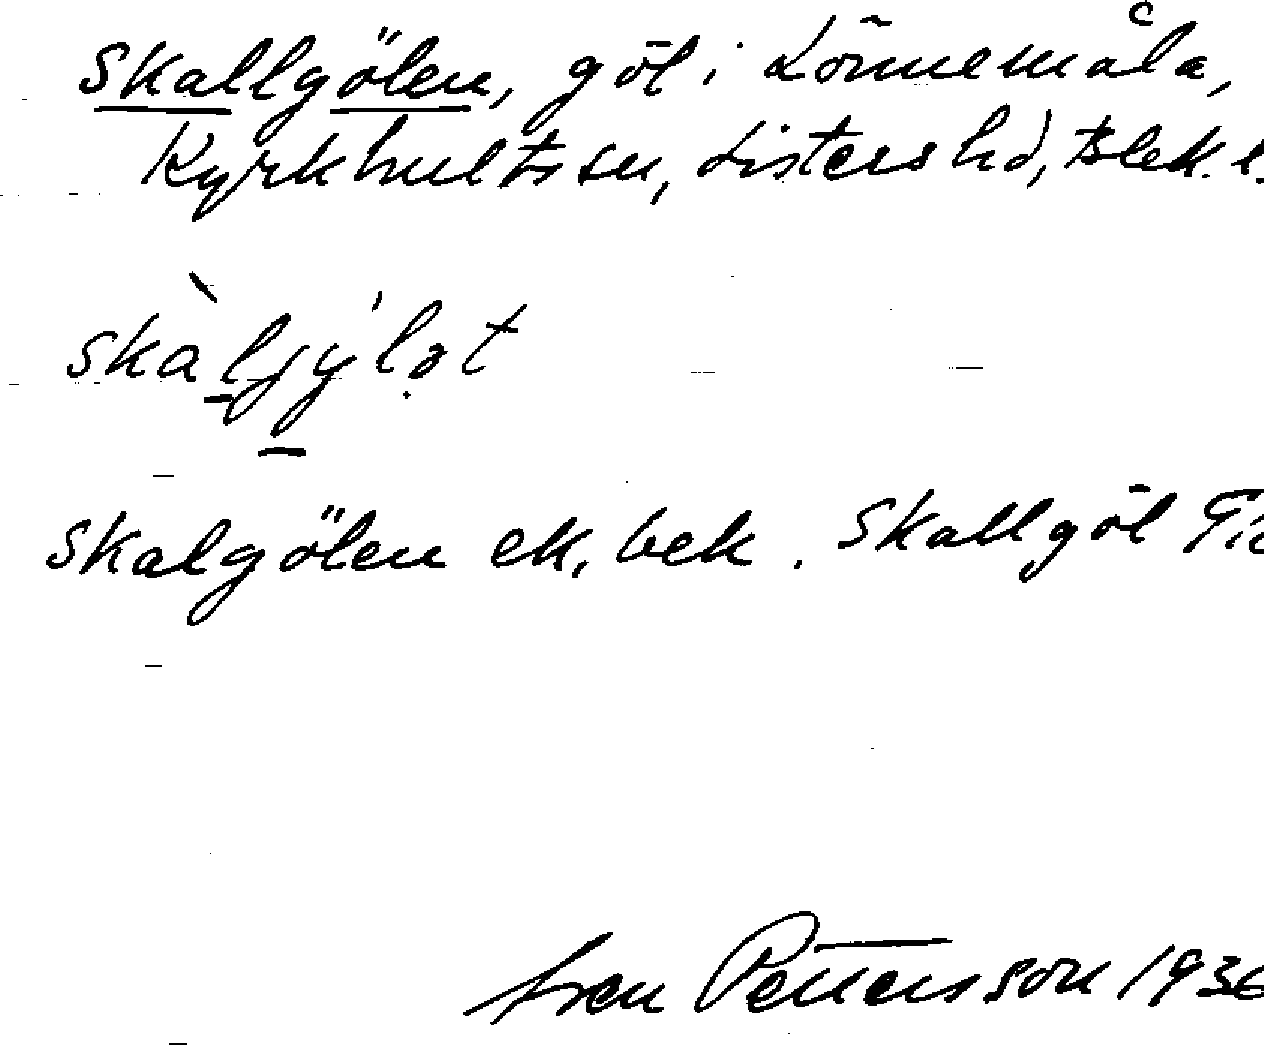 Skallgölen, göl i Lönnemåla,
Kyrkhults sn, Listers hd, Blek. l.
skàljýlət
Skalgölen ek. bek. Skallgöl
Sven Pettersson 1936